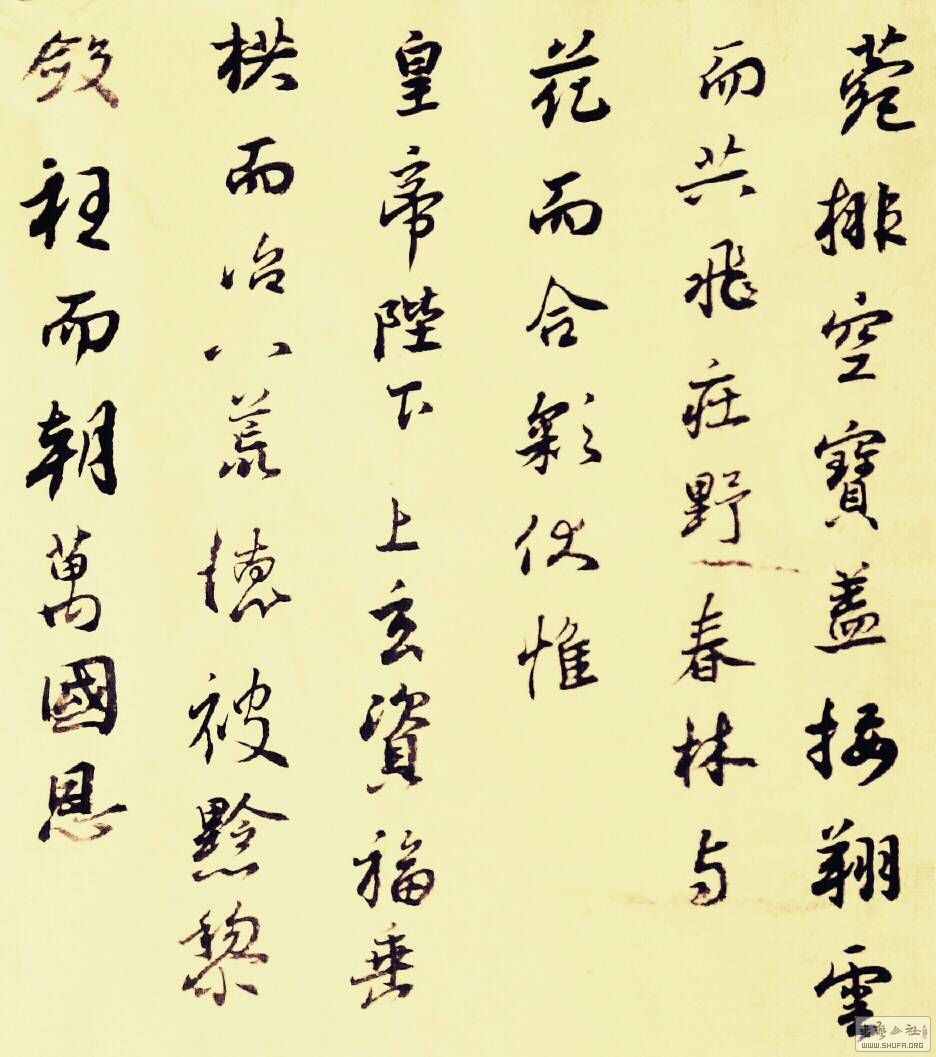 菀排空寶蓋接翔雲
而共飛庄野春林与
花而合彩伏惟
皇帝陛下上玄資福垂
栱而治八荒德被黔黎
斂衽而朝萬國恩
書藝公社
WWW.SHUFA.ORG